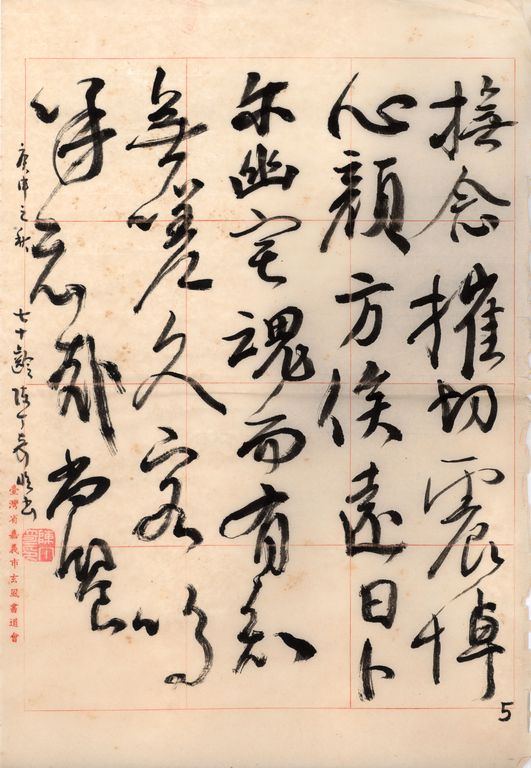 撫念摧切震悼
心顏方俟遠日卜
尔幽宅魂而有知
無嗟久客嗚
呼哀哉尚饗
庚申之秋 七十齡陳丁奇臨書
臺灣省嘉義市玄風書道會
5